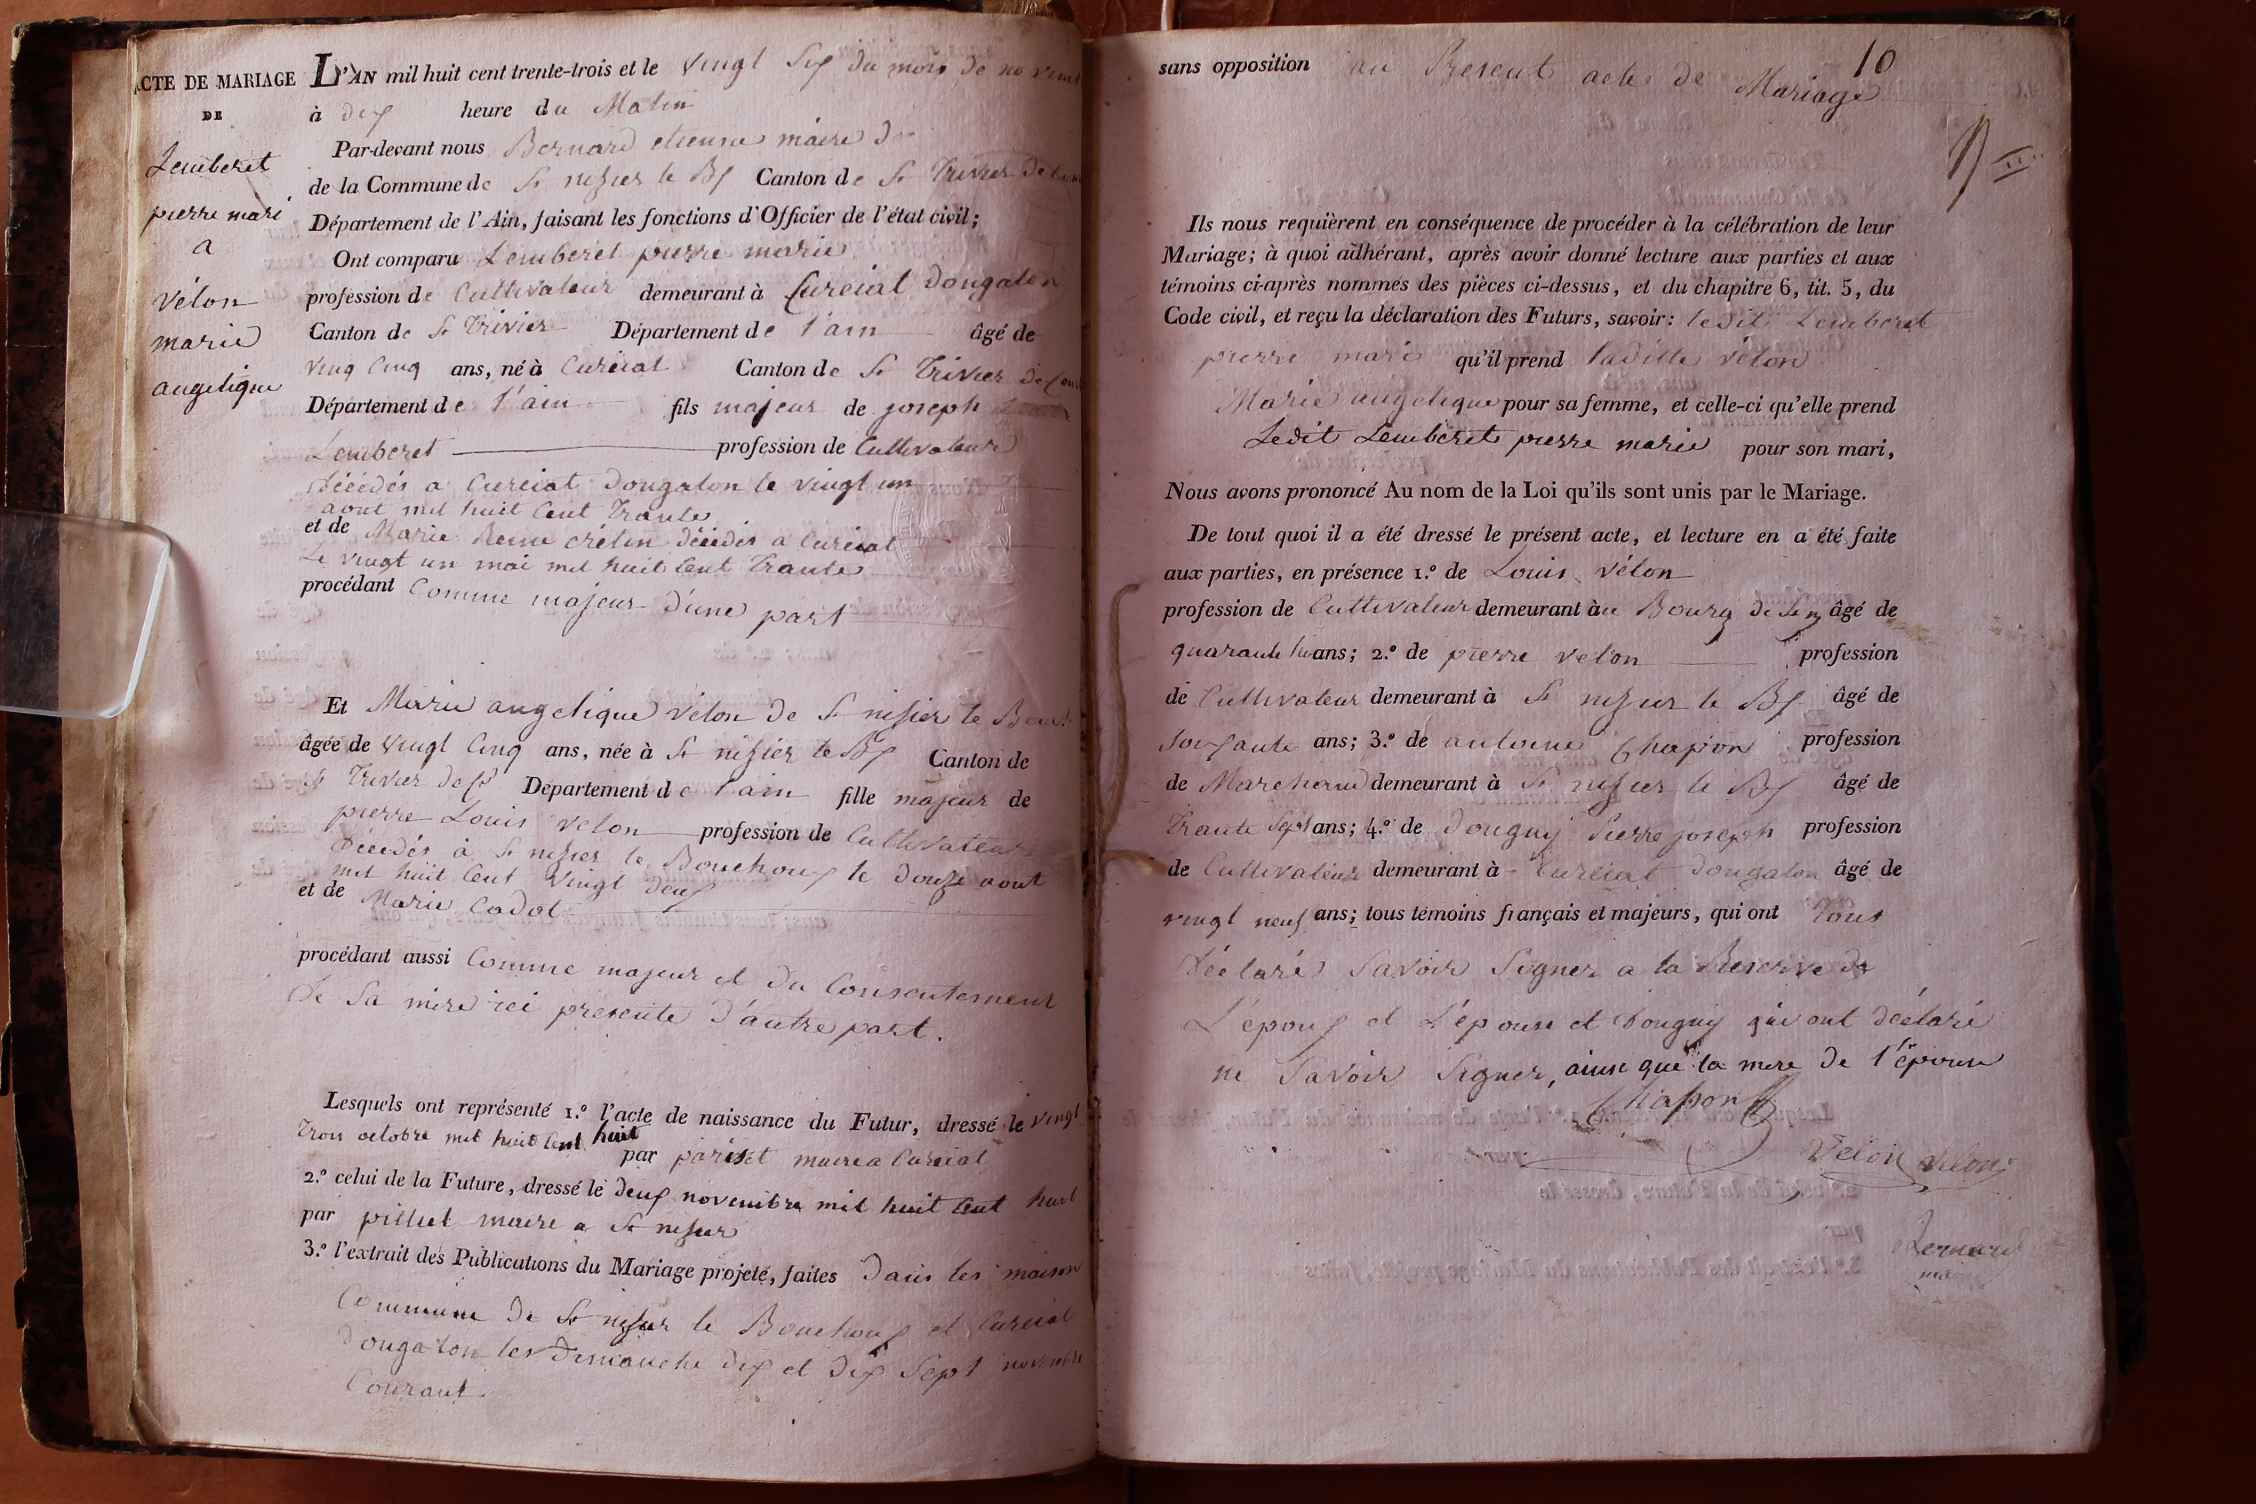 ACTE DE MARIAGE
DE
Lemberet
pierre mari
a
vélon
marie
angelique
L'AN mil huit cent trente-trois et le vingt Six du mois de novem
à dix heure du Matin
Par-devant nous Bernard etienne maire de
de la Commune de St nizier le Bx Canton de St Trivier De Cour
Département de l'Ain, faisant les fonctions d'Officier de l'état civil;
Ont comparu Lemberet pierre marie
profession de Cultivateur demeurant à Curciat Dongalon
Canton de St Trivier Département de l'ain âgé de
vinq Cinq ans, né à Curciat Canton de St Trivier de Cour
Département de l'ain fils majeur de joseph
Lemberet profession de Cultivateur
décédés a Curciat Dongalon le vingt un
aout mil huit Cent Trante
et de Marie Reine crétin décédés a Curciat
Le vingt un mai mil huit Cent Trante
procédant Comme majeur d'une part
Et Marie angelique vélon de St nisier le Bouc
âgée de vingt Cinq ans, née à St nisier le Bx Canton de
St Trivier de Cr Département de l'ain fille majeur de
pierre Louis vélon profession de Cultivateur
Décédés à St nisier le Bouchoux le douze aout
mil huit Cent vingt deux
et de Marie Cadot
procédant aussi Comme majeur et du Consentement
de Sa mere ici présente D'autre part.
Lesquels ont représenté 1.º l'acte de naissance du Futur, dressé le vingt
Trois octobre mil huit Cent huit par pariset maire a Curciat
2.º celui de la Future, dressé le deux novembre mil huit Cent huit
par pillet maire a St nisier
3.º l'extrait des Publications du Mariage projeté, faites Dans les maison
Commune de St nizier le Bouchoux et Curciat
Dongalon les Dimanche dix et Dix Sept novembre
Courant
10
sans opposition au Present acte de Mariage
Ils nous requièrent en conséquence de procéder à la célébration de leur
Mariage; à quoi adhérant, après avoir donné lecture aux parties et aux
témoins ci-après nommés des pièces ci-dessus, et du chapitre 6, tit. 5, du
Code civil, et reçu la déclaration des Futurs, savoir: ledit Lemberet
pierre mari qu'il prend laditte vélon
Marie angelique pour sa femme, et celle-ci qu'elle prend
Ledit Lemberet pierre marie pour son mari,
Nous avons prononcé Au nom de la Loi qu'ils sont unis par le Mariage.
De tout quoi il a été dressé le présent acte, et lecture en a été faite
aux parties, en présence 1.º de Louis vélon
profession de Cultivateur demeurant à au Bourg de St n âgé de
quarante ans; 2.º de pierre velon profession
de Cultivateur demeurant à St nizier le Bx âgé de
Soixante ans; 3.º de antoine Chapon profession
de Marchand demeurant à St nizier le Bx âgé de
Trante Sept ans; 4.º de Donguy Pierre joseph profession
de Cultivateur demeurant à Curciat Dongalon âgé de
vingt neuf ans; tous témoins français et majeurs, qui ont tous
déclaré Savoir Signer a la Reserve de
L'époux et L'épouse et Donguy qui ont déclaré
ne Savoir Signer, ainsi que la mere de l'épouse
Chapon
Velon velon
Bernard
maire